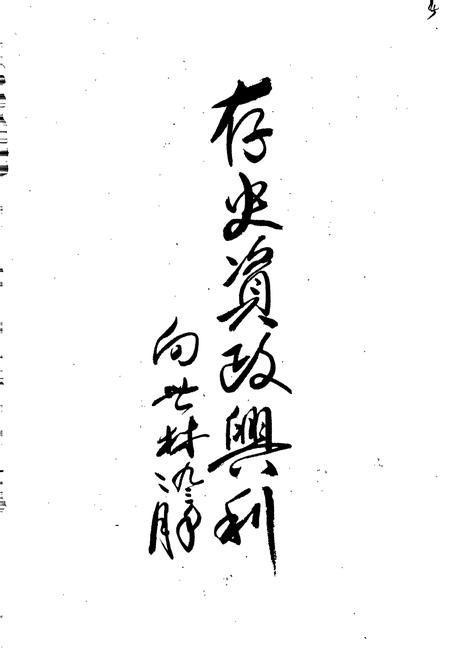 存史資政興利
向世林